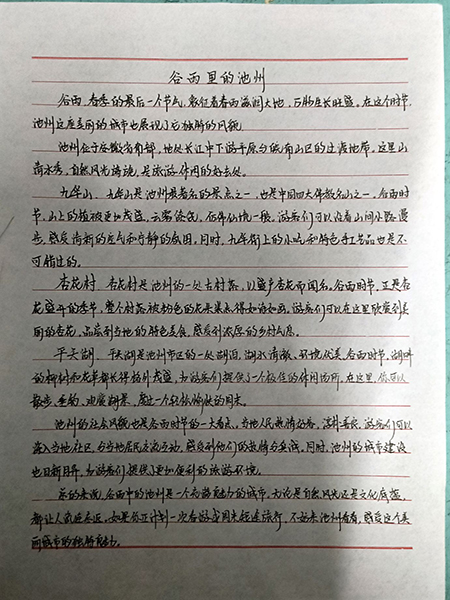 谷雨里的池州
谷雨，春季的最后一个节气，象征着春雨滋润大地，万物生长旺盛。在这个时节，
池州这座美丽的城市也展现了它独特的风貌。
池州位于安徽省南部，地处长江中下游平原与皖南山区的过渡地带。这里山
清水秀，自然风光旖旎，是旅游休闲的好去处。
九华山，九华山是池州最著名的景点之一，也是中国四大佛教名山之一。谷雨时
节，山上的植被更加茂盛，云雾缭绕，仿佛仙境一般。游客们可以沿着山间小路漫
步，感受清新的空气和宁静的氛围。同时，九华街上的小吃和特色手工艺品也是不
可错过的。
杏花村，杏花村是池州的一处古村落，以盛产杏花而闻名。谷雨时节，正是杏
花盛开的季节，整个村落被粉色的花朵装点得如诗如画。游客们可以在这里欣赏到美
丽的杏花，品尝到当地的特色美食，感受到浓厚的乡村气息。
平天湖，平天湖是池州市区的一处湖泊，湖水清澈，环境优美。谷雨时节，湖畔
的柳树和花草都长得格外茂盛，为游客们提供了一个极佳的休闲场所。在这里，你可以
散步、垂钓、观赏湖景，度过一个轻松愉快的周末。
池州的社会风貌也是谷雨时节的一大看点。当地人民热情好客，淳朴善良。游客们可以
深入当地社区，与当地居民交流互动，感受到他们的热情与真诚。同时，池州的城市建设
也日新月异，为游客们提供了更加便利的旅游环境。
总的来说，谷雨中的池州是一个充满魅力的城市。无论是自然风光还是文化底蕴，
都让人流连忘返。如果你正计划一次春游或周末短途旅行，不妨来池州看看，感受这个美
丽城市的独特魅力。